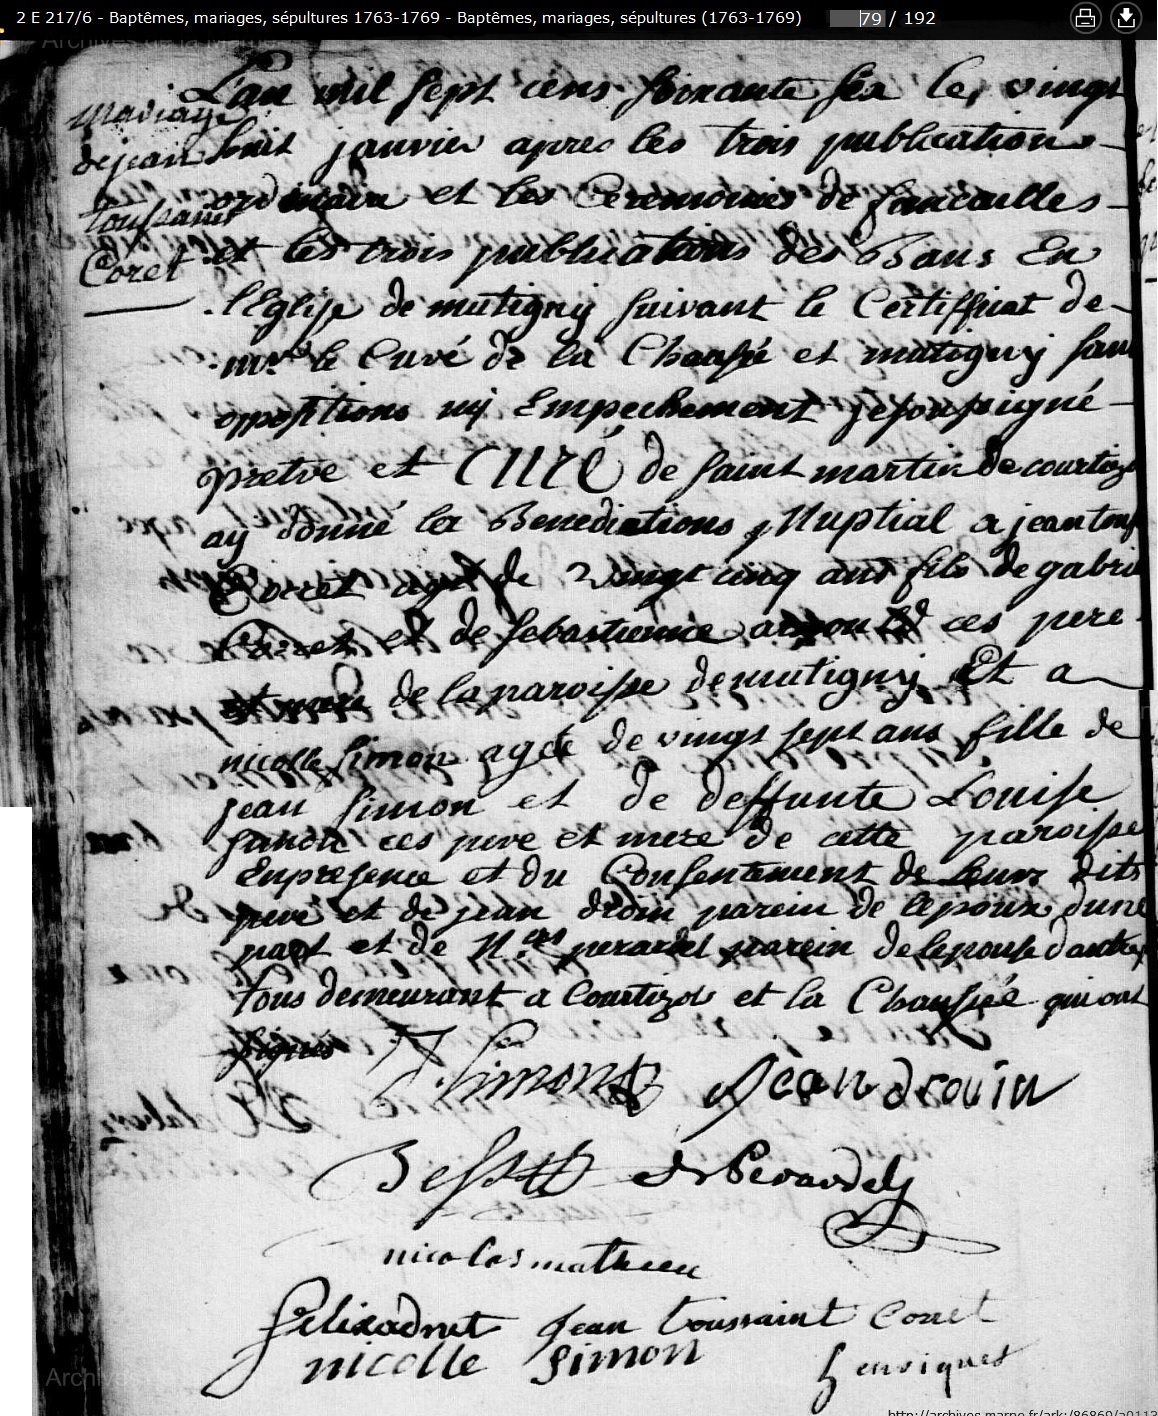 2 E 217/6 - Baptêmes, mariages, sépultures 1763-1769 - Baptêmes, mariages, sépultures (1763-1769) 79 / 192
Mariage
de jean
toussaint
Coret
L'an mil sept cens soixante six le vingt
huit janvier apres les trois publications
ordinaire et les Ceremonies de fiancailles
et les trois publications des Bans En
l'Eglise de mutigny suivant le Certifficat de
mr. le Curé de la Chaussé et mutigny sans
oppositions ny Empechement je soussigné
pretre et CURÉ de saint martin de courtizol
ay donné les Benedictions Nuptial a jean touss
Coiret agé de vingt cinq ans fils de gabriel
Coiret et de sebastienne arnould ces pere
et mere de la paroisse de mutigny Et a
nicolle simon agée de vingt sept ans fille de
jean simon et de deffunte Louise
ces pere et mere de cette paroisse
En presence et du Consentement de Leurs dits
peré et de jean droin parein de lepoux dune
part et de N.las perardel parein de lepouse dautre
tous demeurant a Courtizols et la Chaussée qui ont
signés
J. Simon Jean drouin
Perardel
nicolas mathieu
felix adnet Jean toussaint Corret
nicolle Simon henriquet
Archives de la Marne
http://archives.marne.fr/ark:/86869/a0113